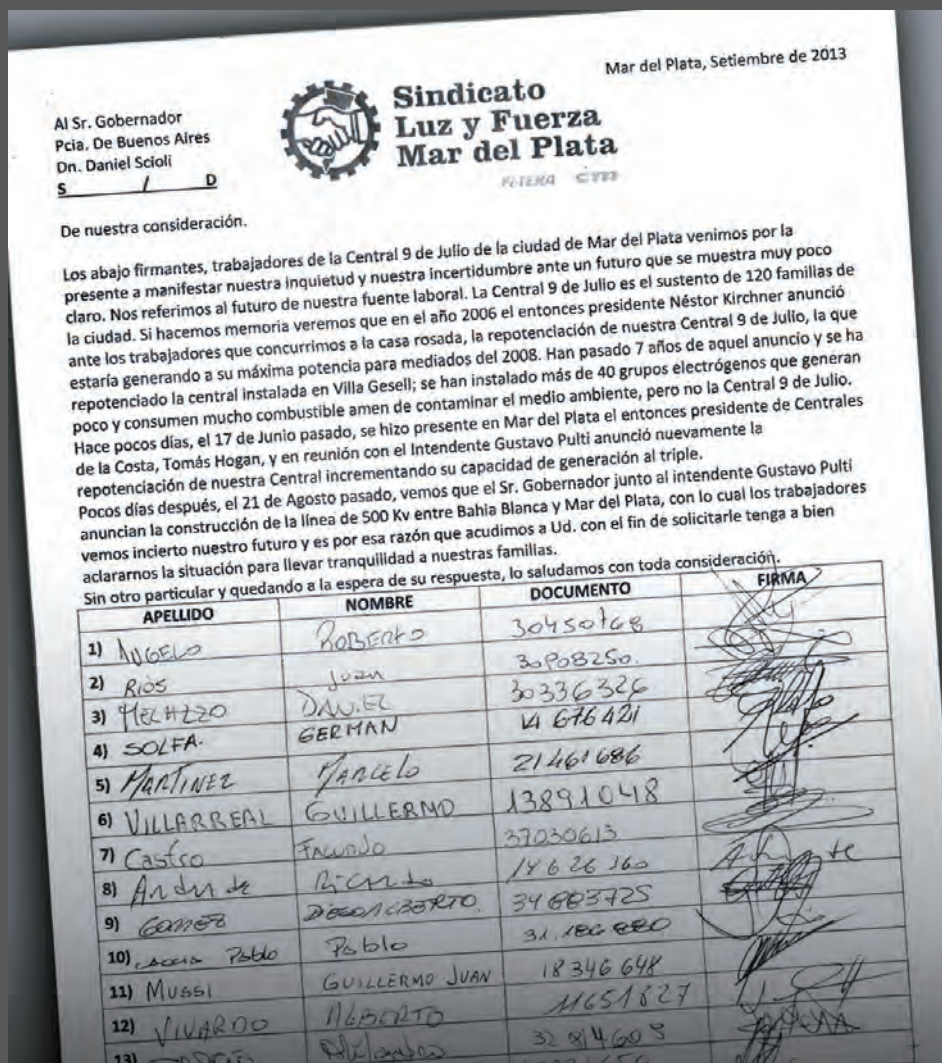 Mar del Plata, Setiembre de 2013
Al Sr. Gobernador
Pcia. De Buenos Aires
Dn. Daniel Scioli
S / D
Sindicato
Luz y Fuerza
Mar del Plata
FETERA CTA
De nuestra consideración.
Los abajo firmantes, trabajadores de la Central 9 de Julio de la ciudad de Mar del Plata venimos por la
presente a manifestar nuestra inquietud y nuestra incertidumbre ante un futuro que se muestra muy poco
claro. Nos referimos al futuro de nuestra fuente laboral. La Central 9 de Julio es el sustento de 120 familias de
la ciudad. Si hacemos memoria veremos que en el año 2006 el entonces presidente Néstor Kirchner anunció
ante los trabajadores que concurrimos a la casa rosada, la repotenciación de nuestra Central 9 de Julio, la que
estaría generando a su máxima potencia para mediados del 2008. Han pasado 7 años de aquel anuncio y se ha
repotenciado la central instalada en Villa Gesell; se han instalado más de 40 grupos electrógenos que generan
poco y consumen mucho combustible amen de contaminar el medio ambiente, pero no la Central 9 de Julio.
Hace pocos días, el 17 de Junio pasado, se hizo presente en Mar del Plata el entonces presidente de Centrales
de la Costa, Tomás Hogan, y en reunión con el Intendente Gustavo Pulti anunció nuevamente la
repotenciación de nuestra Central incrementando su capacidad de generación al triple.
Pocos días después, el 21 de Agosto pasado, vemos que el Sr. Gobernador junto al intendente Gustavo Pulti
anuncian la construcción de la línea de 500 Kv entre Bahia Blanca y Mar del Plata, con lo cual los trabajadores
vemos incierto nuestro futuro y es por esa razón que acudimos a Ud. con el fin de solicitarle tenga a bien
aclararnos la situación para llevar tranquilidad a nuestras familias.
Sin otro particular y quedando a la espera de su respuesta, lo saludamos con toda consideración.
APELLIDO NOMBRE DOCUMENTO FIRMA
1) ANGELO ROBERTO
2) RIOS Juan 30908250.
3) DANIEL 30336326
4) SOLFA. GERMAN 14 676 421
5) MARTINEZ MARCELO 21461686
6) VILLARREAL GUILLERMO 13891048
7) Castro Facundo 37030613
8) Andrade Ricardo 14626360
9) GOMEZ DIEGO ALBERTO.
10) Pablo Pablo
11) MUSSI GUILLERMO JUAN 18 346 648
12) VIVARDO ALBERTO 11651827
13) Alejandro